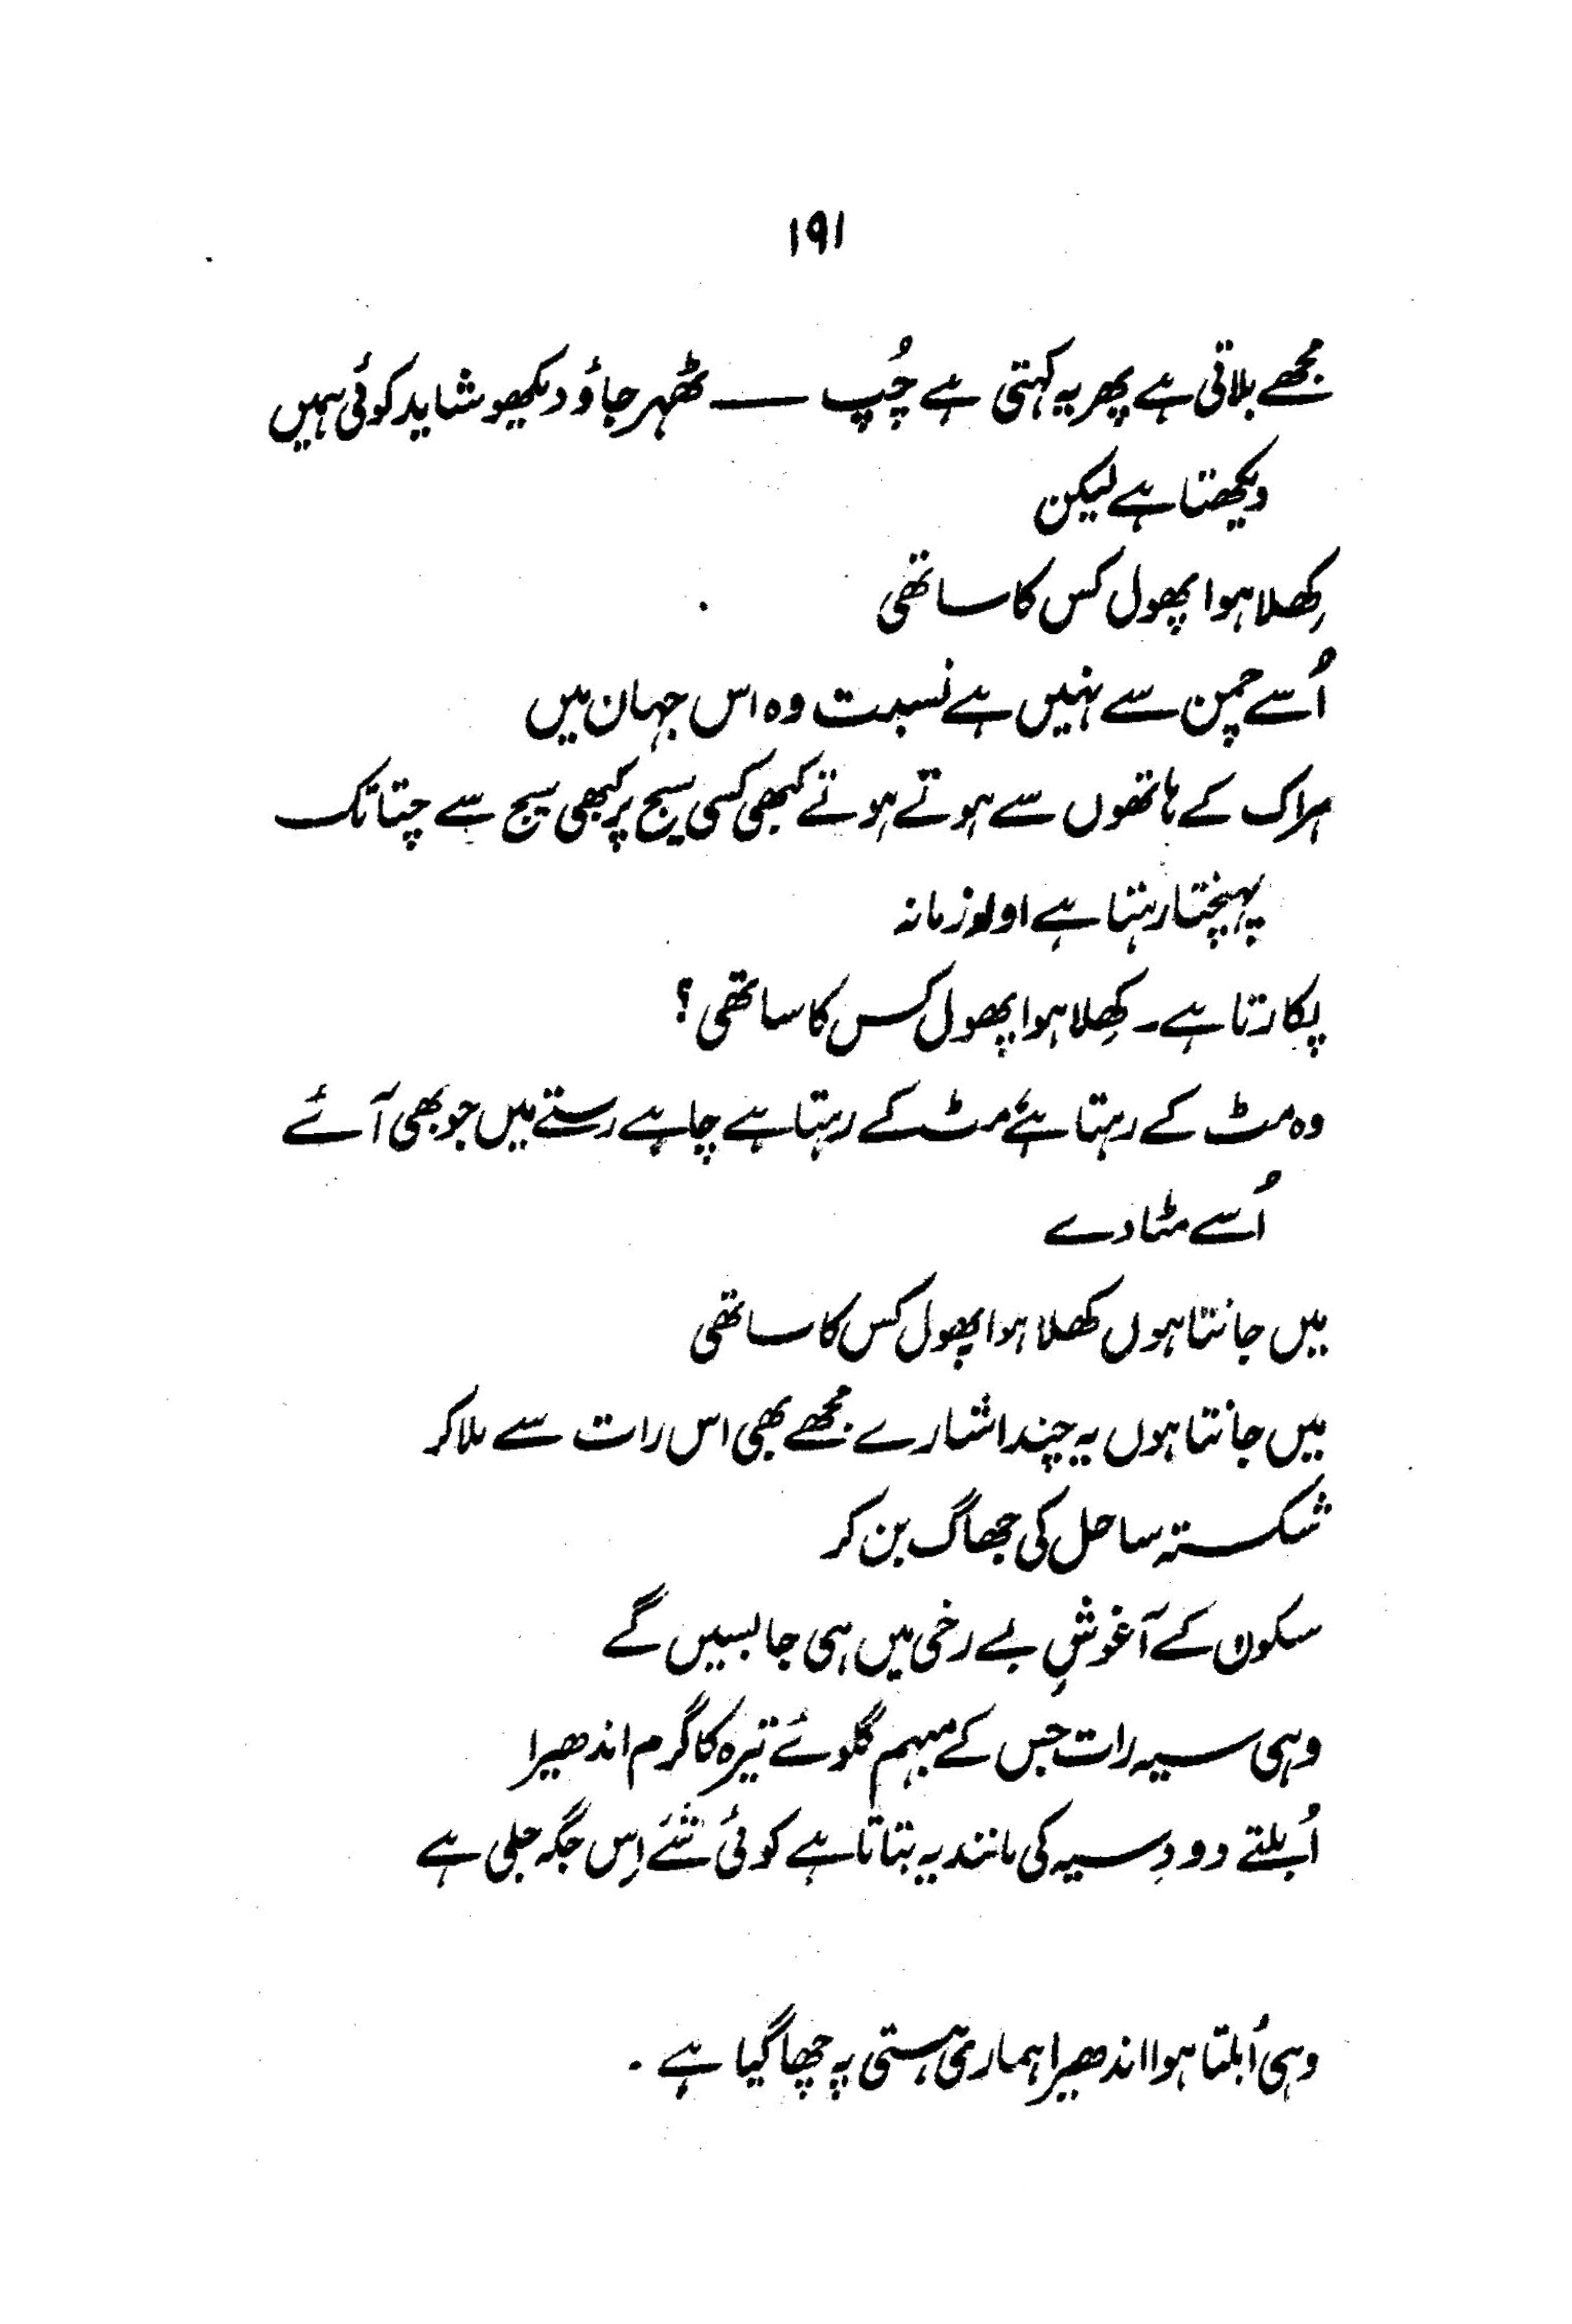 ۱۹۱
مجھے بلاتی ہے پھر یہ کہتی ہے چُپ — ٹھہر جاؤ دیکھو شاید کوئی ہمیں
دیکھتا ہے لیکن
کِھلا ہوا پھول کس کا ساتھی
اُسے چمن سے نہیں ہے نسبت وہ اس جہان میں
ہراک کے ہاتھوں سے ہوتے ہوتے کبھی کسی سیج پر کبھی سیج سے چتا تک
پہنچتا رہتا ہے اور زمانہ
پکارتا ہے۔ کِھلا ہوا پھول کس کا ساتھی؟
وہ مٹ کے رہتا ہے مٹ کے رہتا ہے چاہے رستے میں جو بھی آئے
اُسے مٹا دے
میں جانتا ہوں کھلا ہوا پھول کس کا ساتھی
میں جانتا ہوں یہ چند اشارے مجھے بھی اس رات سے ملا کر
شکستہ ساحل کی جھاگ بن کر
سکون کے آغوشِ بے رخی میں ہی جا بسیں گے
وہی سیہ رات جس کے مبہم گلوئے تیرہ کا گرم اندھیرا
اُبلتے دودِ سیہ کی مانند یہ بتاتا ہے کوئی شئے اِس جگہ جلی ہے
وہی اُبلتا ہوا اندھیرا ہماری ہستی پہ چھا گیا ہے۔